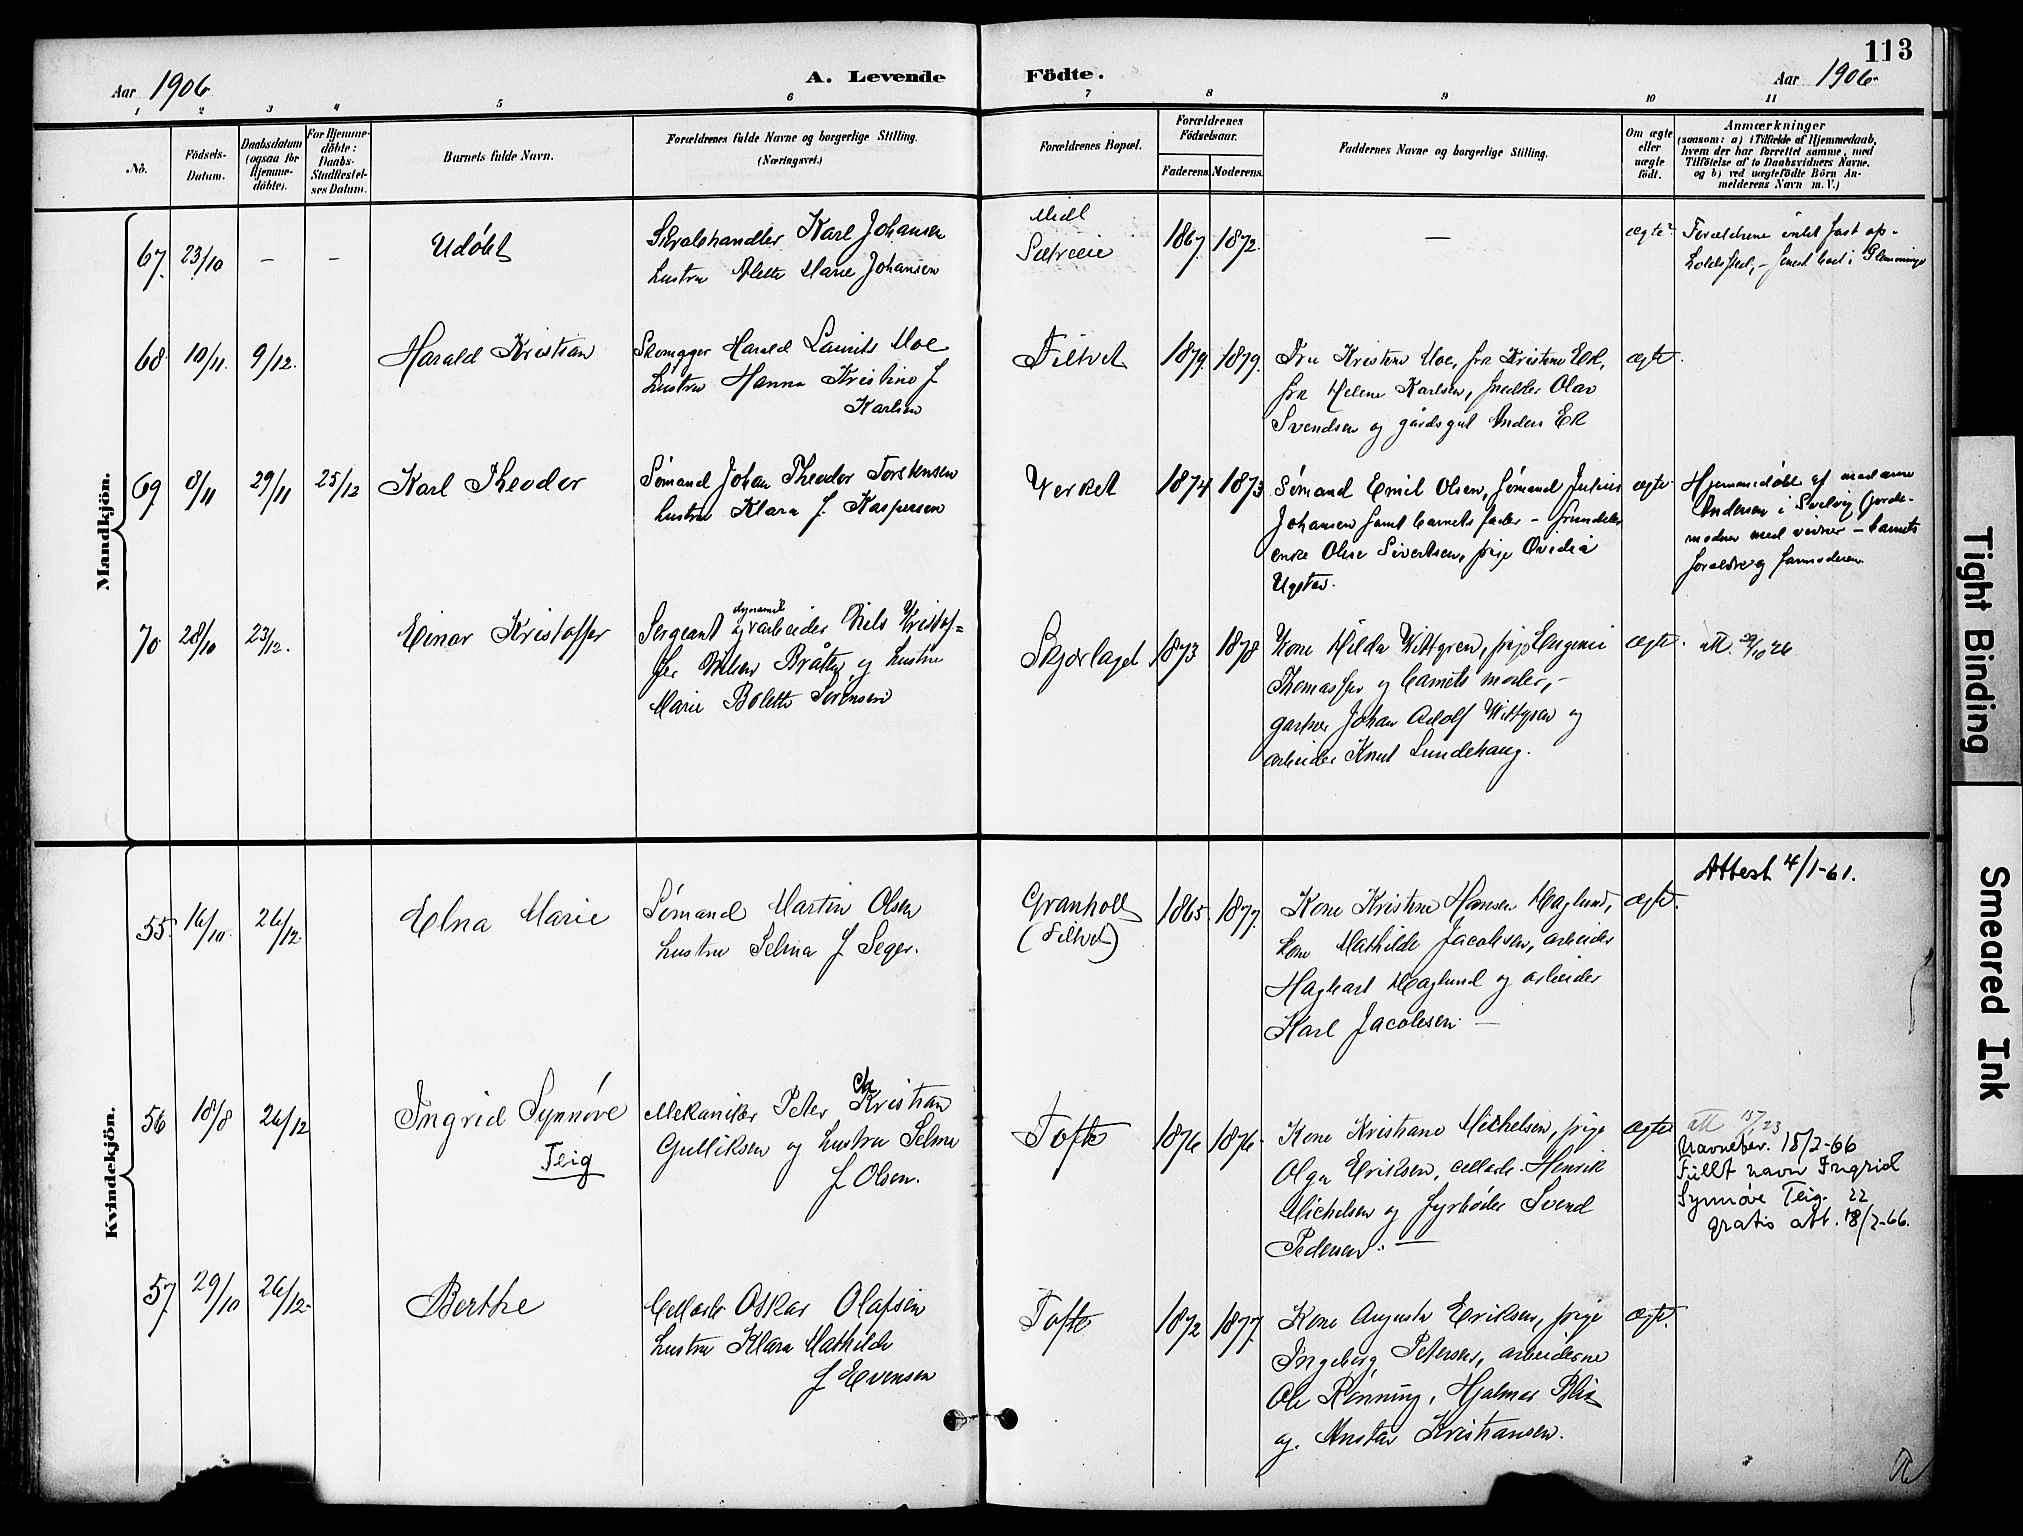 113
Aar 1906
A. Levende
Födte.
Aar 1906
1 2 3 4 5 6 7 8 9 10 11
No.
Födsels-
Datum.
Daabsdatum
(ogsaa for
Hjemme-
döbte).
For Hjemme-
döbte:
Daabs-
Stadfæstel-
ses Datum.
Barnets fulde Navn.
Forældrenes fulde Navne og borgerlige Stilling.
(Næringsvei.)
Forældrenes Bopæl.
Forældrenes
Födselsaar.
Faderens Moderens.
Faddernes Navne og borgerlige Stilling.
Om ægte
eller
uægte
födt.
Anmærkninger
(saasom: a) i Tilfælde af Hjemmedaab,
hvem der har forrettet samme, med
Tilföielse af to Daabsvidners Navne.
og b) ved uægtefödte Börn An-
melderens Navn m. V.)
Mandkjön.
67. 23/10 – –
Udøbt
Karl Johansen
hustru Marie Johansen
Midl
Sætreeie
1867 1872.
–
ægte
Forældrene intet fast op-
holdssted, – senest boet i
68 10/11. 9/12.
Harald Kristian
Harald Laurits Moe
hustru Hanna Kristine f
Karlsen
Filtvet
1879. 1879.
Fru Kristine Moe, fru Kristine Ek,
fru Helene Karlsen, snedker Olav
Svendsen og gårdsgut Anders Ek
ægte.
69. 8/11 29/11 25/12
Karl Theodor
Sømand Johan Theodor Torstensen
hustru Klara f. Kaspersen
Verket
1874 1873
Sømand Emil Olsen, sømand Julius
Johansen samt barnets fader –
enke Olise Sivertsen, pige Ovidia
Ugstad.
ægte
Hjemmedøbt af madame
Andersen i Svelvig (jorde-
moder med vidner – barnets
forældre og farmoderen
70 28/10 23/12.
Einar Kristoffer
Sergeant og dynamitarbeider Nils Kristof=
fer Nilsen Bråten og hustru
Marie Bolette Sørensen
Skjærlaget
1873 1878
Kone Hilda Wittgren, pige Eugenie
og barnets moder, –
gartner Johan Adolf Wittgren og
arbeider Knut Lundehaug.
ægte.
att. 29/10 26
Kvindekjön.
55. 16/10. 26/12.
Edna Marie
Sømand Martin Olsen
hustru Selma f Seger.
Granholt
(Filtvet)
1865 1877.
Kone Kristine Hansen Haglund,
kone Mathilde Jacobsen, arbeider
Haglund og arbeider
Karl Jacobsen –
ægte.
Attest 4/1-61.
56 18/8 26/12
Ingrid Synnøve
Teig
Mekaniker Peter Kristian
Ch
Gulliksen og hustru Selma
f Olsen.
Tofte
1876 1876
Kone Kristiane Michelsen, pige
Olga Eriksen, cellarb. Henrik
Michelsen og fyrbøder Svend
Pedersen. –
ægte
att 23
Navnebev. 18/2-66
Fullt navn Ingrid
Synnøve Teig. 22
gratis att. 18/2-66.
57. 29/10 26/12.
Berthe
Cellarb. Oskar Olafsen
hustru Klara Mathilde
f Evensen
Tofte
1872 1877.
Kone Augusta Eriksen, pige
Ingeborg Petersen, arbeiderne
Ole Rønning, Hjalmar
og. Anstar Kristiansen.
ægte.
Tight Binding
Smeared Ink